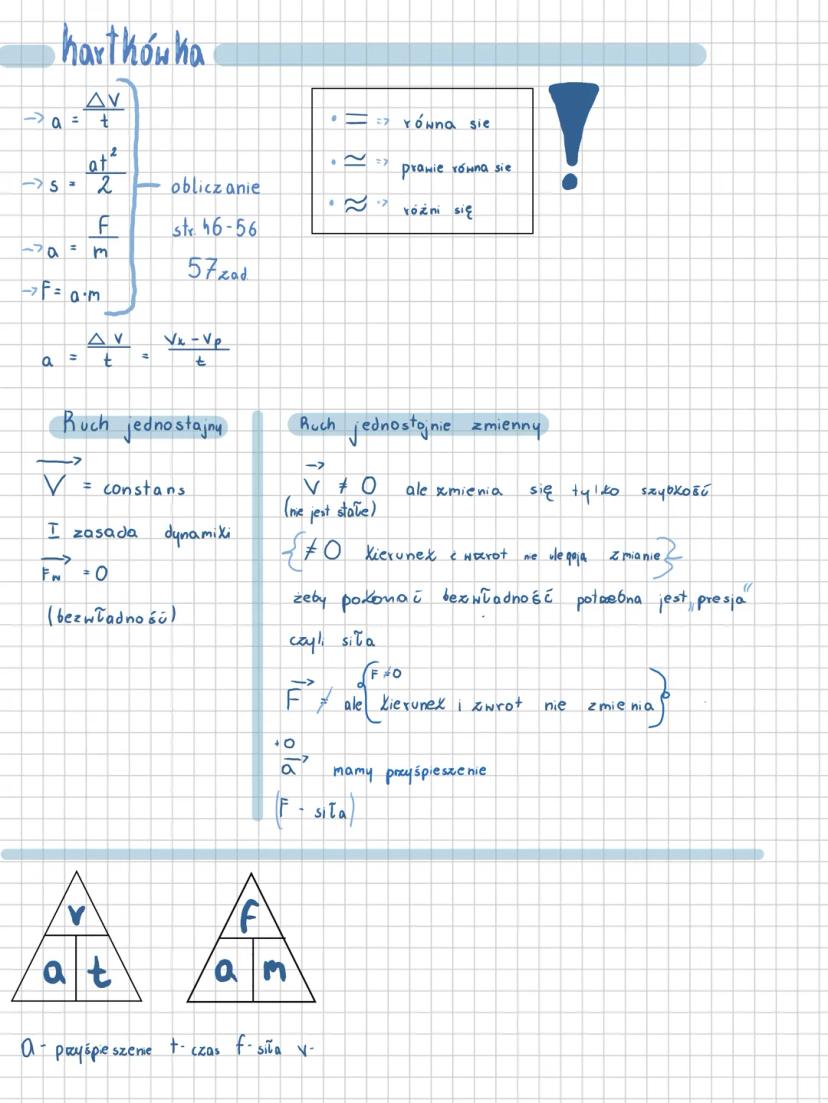 kartkówka
→ a = ΔV/t
→ s = at²/2
→ a = F/m
→ F = a·m
obliczanie
str. 46-56
57 zad.
• = => równa sie
• ≃ => prawie równa sie
• ≈ => różni się
!
a = ΔV/t = Vk - Vp/t
Ruch jednostajny
V⃗ = constans
I zasada dynamiki
F⃗w = 0
(bezwładność)
Ruch jednostojnie zmienny
V⃗ ≠ 0 ale zmienia się tylko szybkość
(nie jest stałe)
{≠0 kierunek i zwrot nie ulegają zmianie}
żeby pokonać bezwładność potrzebna jest „presja"
czyli siła
F ≠0
F⃗ ≠ ale {kierunek i zwrot nie zmienia}
+0
a⃗ mamy przyśpieszenie
(F - siła)
v
a t
f
a m
a - przyśpieszenie t - czas f - siła v -